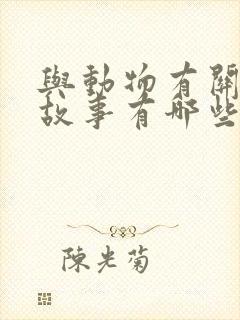 與動物有關
故事有哪些
陳光菊